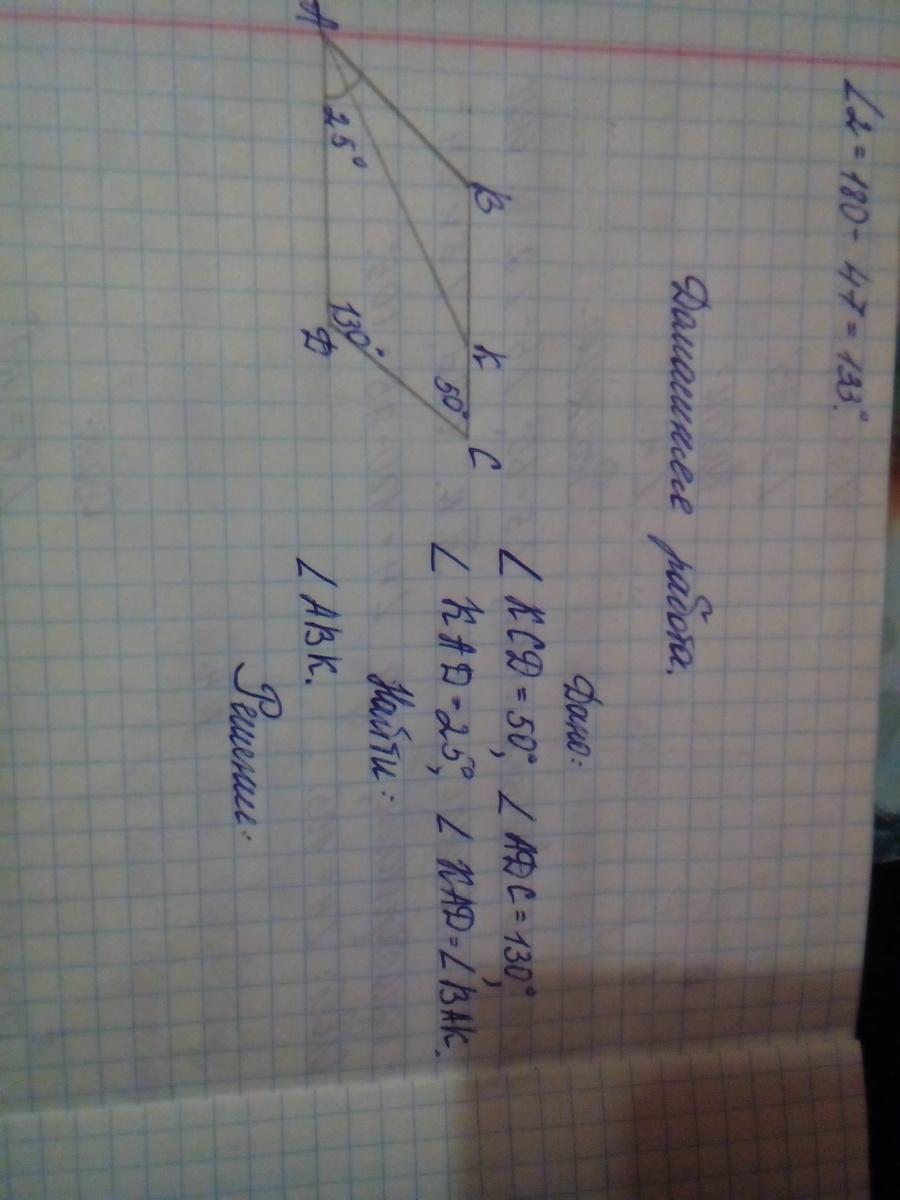 ∠2 = 180 - 47 = 133°.
Домашнее работа.
A
B
K
C
D
25°
130°
50°
Дано:
∠ KCD = 50°, ∠ ADC = 130°,
∠ KAD = 25°, ∠ KAD = ∠ BAK.
Найти:
∠ ABK.
Решение: